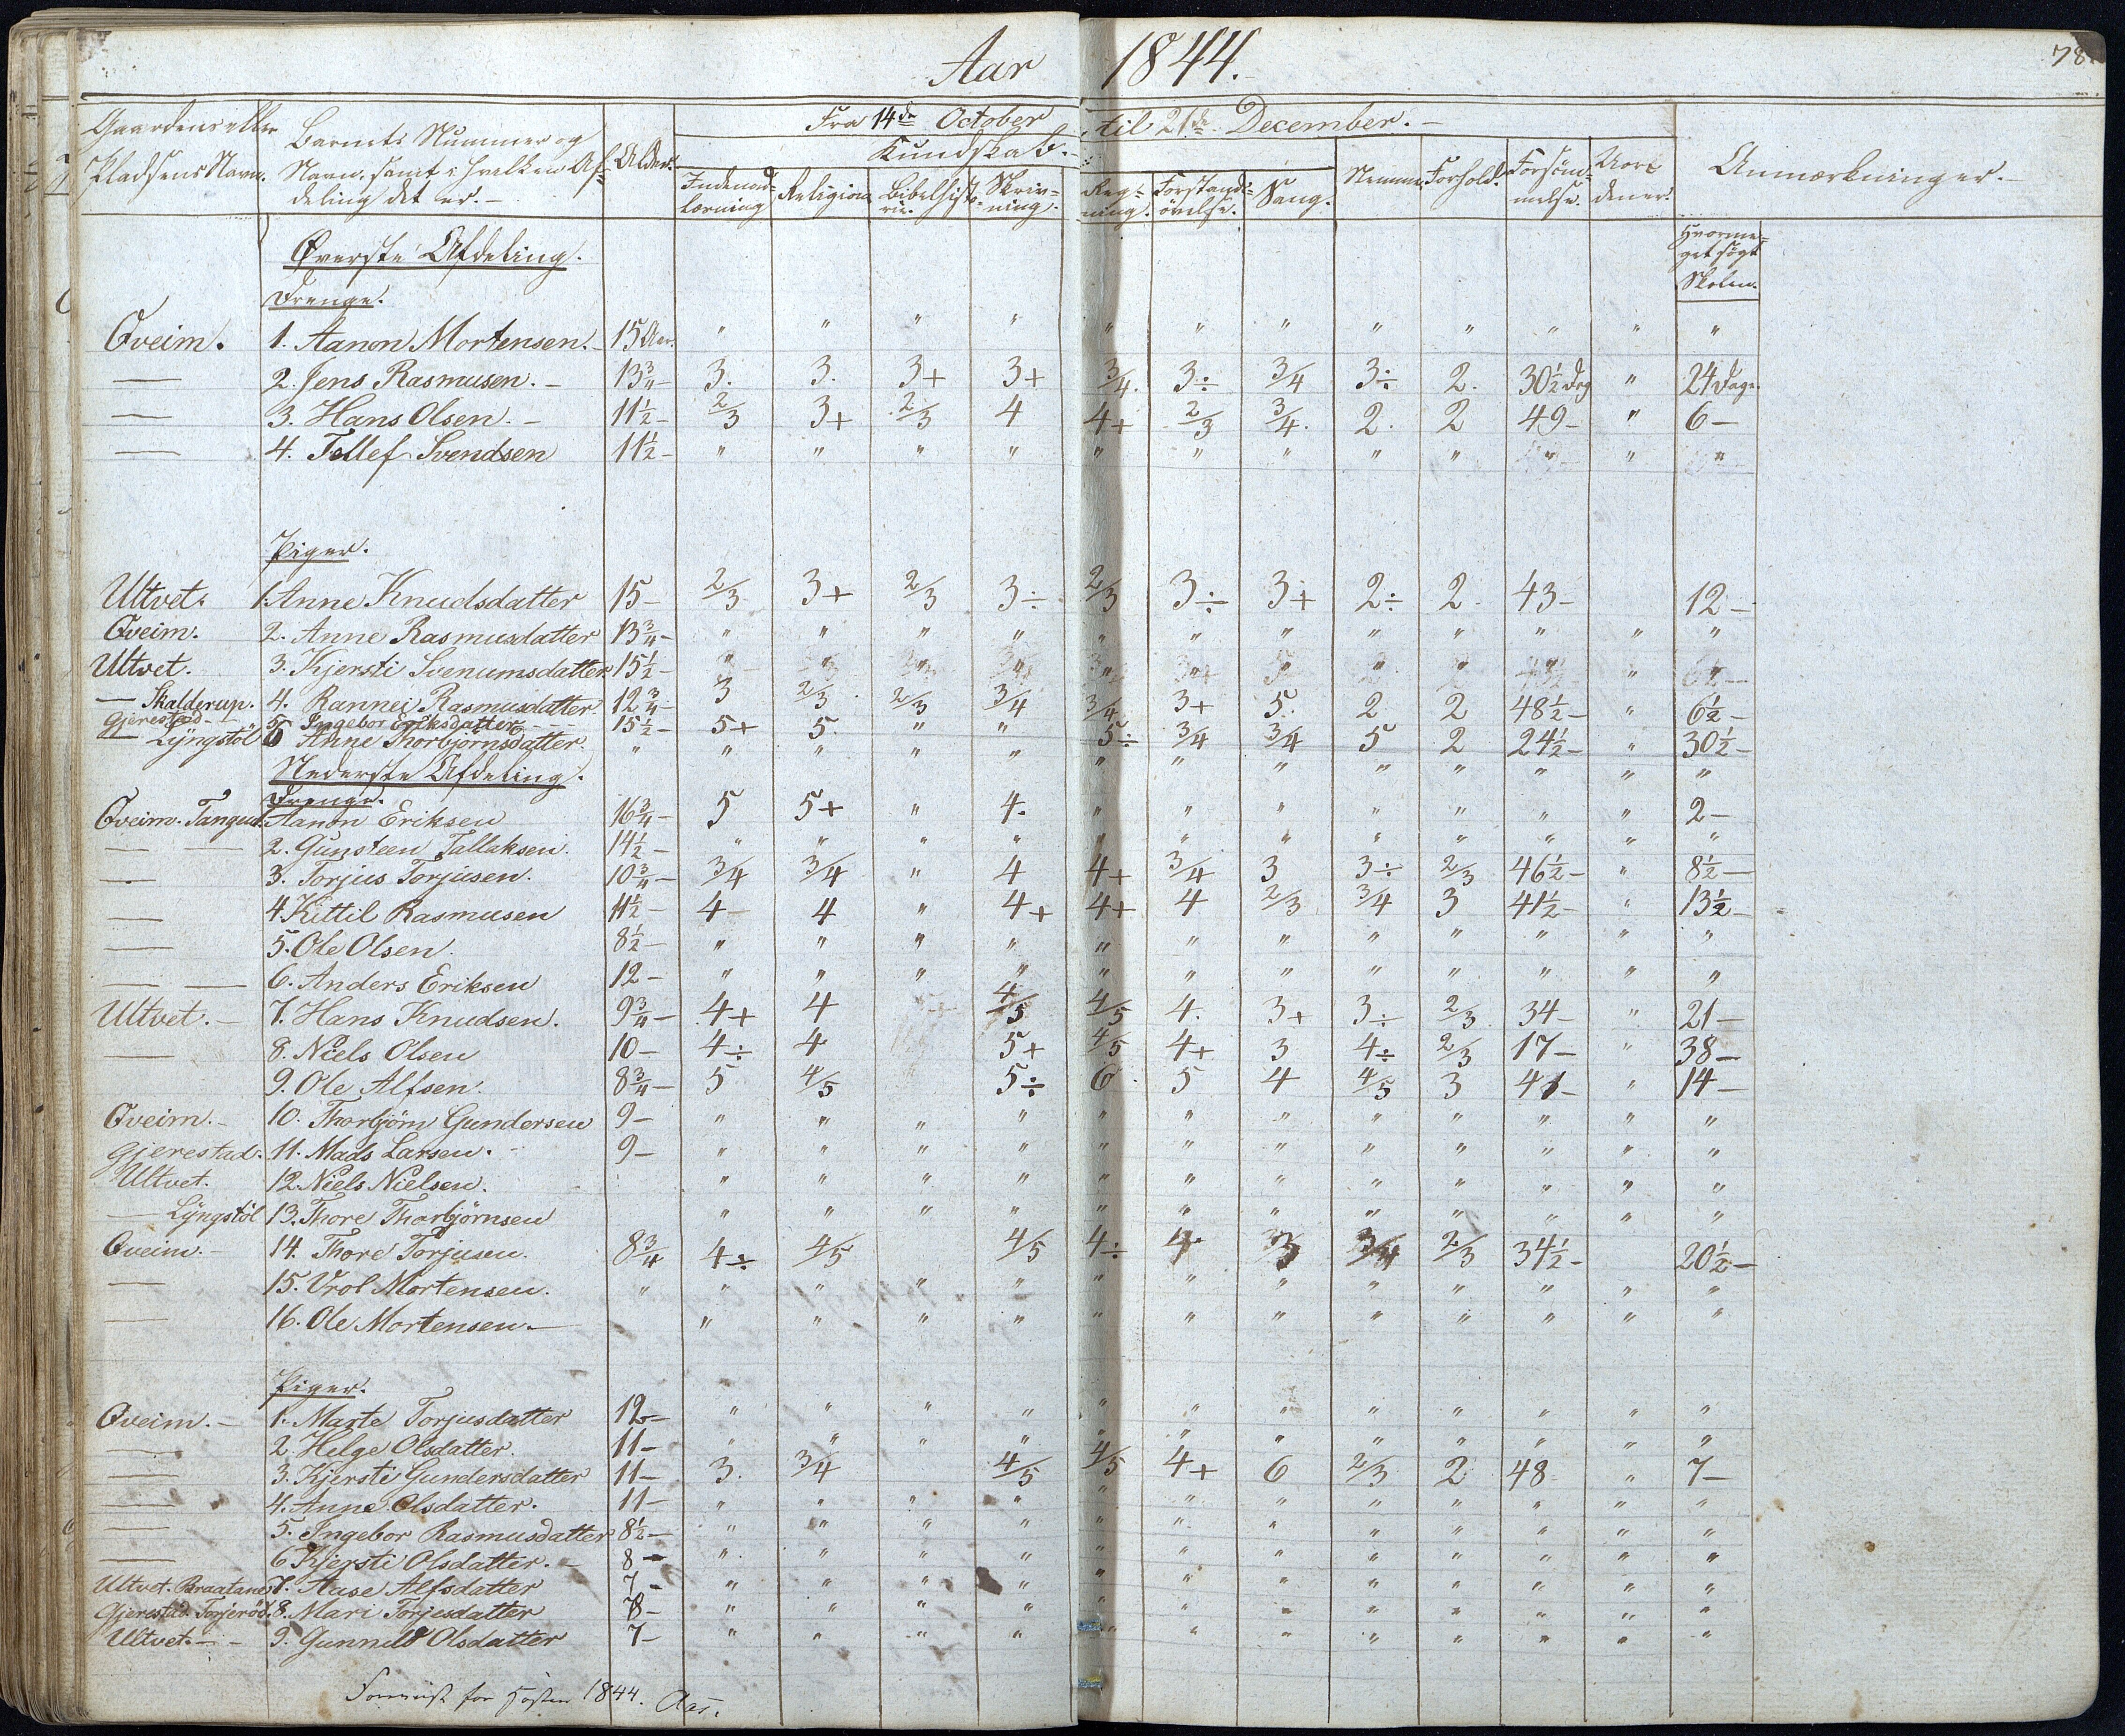 Aar 1844.
78.
Gaardens eller Pladsens Navn.
Barnets Nummer og Navn, samt i hvilken Afdeling det er.
Alder.
Fra 14de October til 21de December.
Kundskab.
Indenadlæsning
Religion
Bibelhistorie.
Skrivning.
Regning.
Forstandsövelse.
Sang.
Nemme
Forhold.
Forsömmelse.
Uordener.
Anmærkninger.
Hvormeget sögt Skolen.
Øverste Afdeling.
Drenge.
Qveim. 1. Aanon Mortensen. 15 Aar. " " " " " " " " " " " "
— 2. Jens Rasmusen. 13¾ 3. 3. 3+ 3+ 3/4. 3÷ 3/4 3÷ 2. 30½ Dag " 24 Dage.
— 3. Hans Olsen. 11½ 2/3 3+ 2/3 4 4+ 2/3 3/4. 2. 2 49 " 6
— 4. Tellef Svendsen 11½ " " " " " " " " " " " "
Piger.
Ultvet. 1. Anne Knudsdatter 15 2/3 3+ 2/3 3÷ 2/3 3÷ 3+ 2÷ 2 43 12
Qveim. 2. Anne Rasmusdatter 13¾ " " " " " " " " " " " "
Ultvet. 3. Kjersti Svenumsdatter 15½ " " " " " " " " " " " "
— Skalderup. 4. Rannei Rasmusdatter 12¾ 3 2/3 2/3 3/4 3/4 3+ 5. 2 2 48½ " 6½
Gjerestad 5. Ingebor Eriksdatter 15½ 5+ 5. " " 5÷ 3/4 3/4 5 2 24½ " 30½
— Lÿngstöl 6 Anne Thorbjörnsdatter. " " " " " " " " " " " " "
Nederste Afdeling.
Drenge.
Qveim. Tangen. 1. Aanon Eriksen 16¾ 5 5+ " 4. " " " " " " " 2
— — 2. Gunsteen Tallaksen. 14½ " " " " " " " " " " " "
— 3. Torjus Torjusen. 10¾ 3/4 3/4 " 4 4+ 3/4 3 3÷ 2/3 46½ " 8½
— 4. Kittil Rasmusen 11½ 4 4 " 4+ 4+ 4 2/3 3/4 3 41½ " 13½
— 5. Ole Olsen. 8½ " " " " " " " " " " " "
— — 6. Anders Eriksen 12 " " " " " " " " " " " "
Ultvet. 7. Hans Knudsen. 9¾ 4+ 4 4/5 4/5 4. 3+ 3÷ 2/3 34 " 21
— 8. Niels Olsen 10 4÷ 4 5+ 4/5 4+ 3 4÷ 2/3 17 " 38
9. Ole Alfsen. 8¾ 5 4/5 5÷ 6 5 4 4/5 3 41 " 14
Qveim. 10. Thorbjörn Gundersen 9 " " " " " " " " " " " "
Gjerestad. 11. Mads Larsen. 9 " " " " " " " " " " " "
Ultvet. 12. Niels Nielsen. " " " " " " " " " " " "
— Lÿngstöl 13. Thore Thorbjörnsen " " " " " " " " " " " "
Qveim. 14. Thore Torjusen. 8¾ 4÷ 4/5 4/5 4÷ 4. 3 3/4 2/3 34½ 20½
— 15. Vrol Mortensen. " " " " " " " " " " " " "
— 16. Ole Mortensen. " " " " " " " " " " " "
Piger.
Qveim. 1. Marte Torjusdatter 12 " " " " " " " " " " " "
— 2. Helge Olsdatter. 11 " " " " " " " " " " " "
— 3. Kjersti Gundersdatter 11 3. 3/4 4/5 4/5 4+ 6 2/3 2 48 " 7
— 4. Anne Olsdatter. 11 " " " " " " " " " " " "
— 5. Ingebor Rasmusdatter 8½ " " " " " " " " " " " "
— 6 Kjersti Olsdatter. 8 " " " " " " " " " " " "
Ultvet. Braatane 7. Aase Alfsdatter 7 " " " " " " " " " " " "
Gjerestad. Torjeröd. 8. Mari Torjesdatter 8 " " " " " " " " " " " "
Ultvet. 9. Gunnild Olsdatter 7 " " " " " " " " " " " "
for Hösten 1844. Aas.